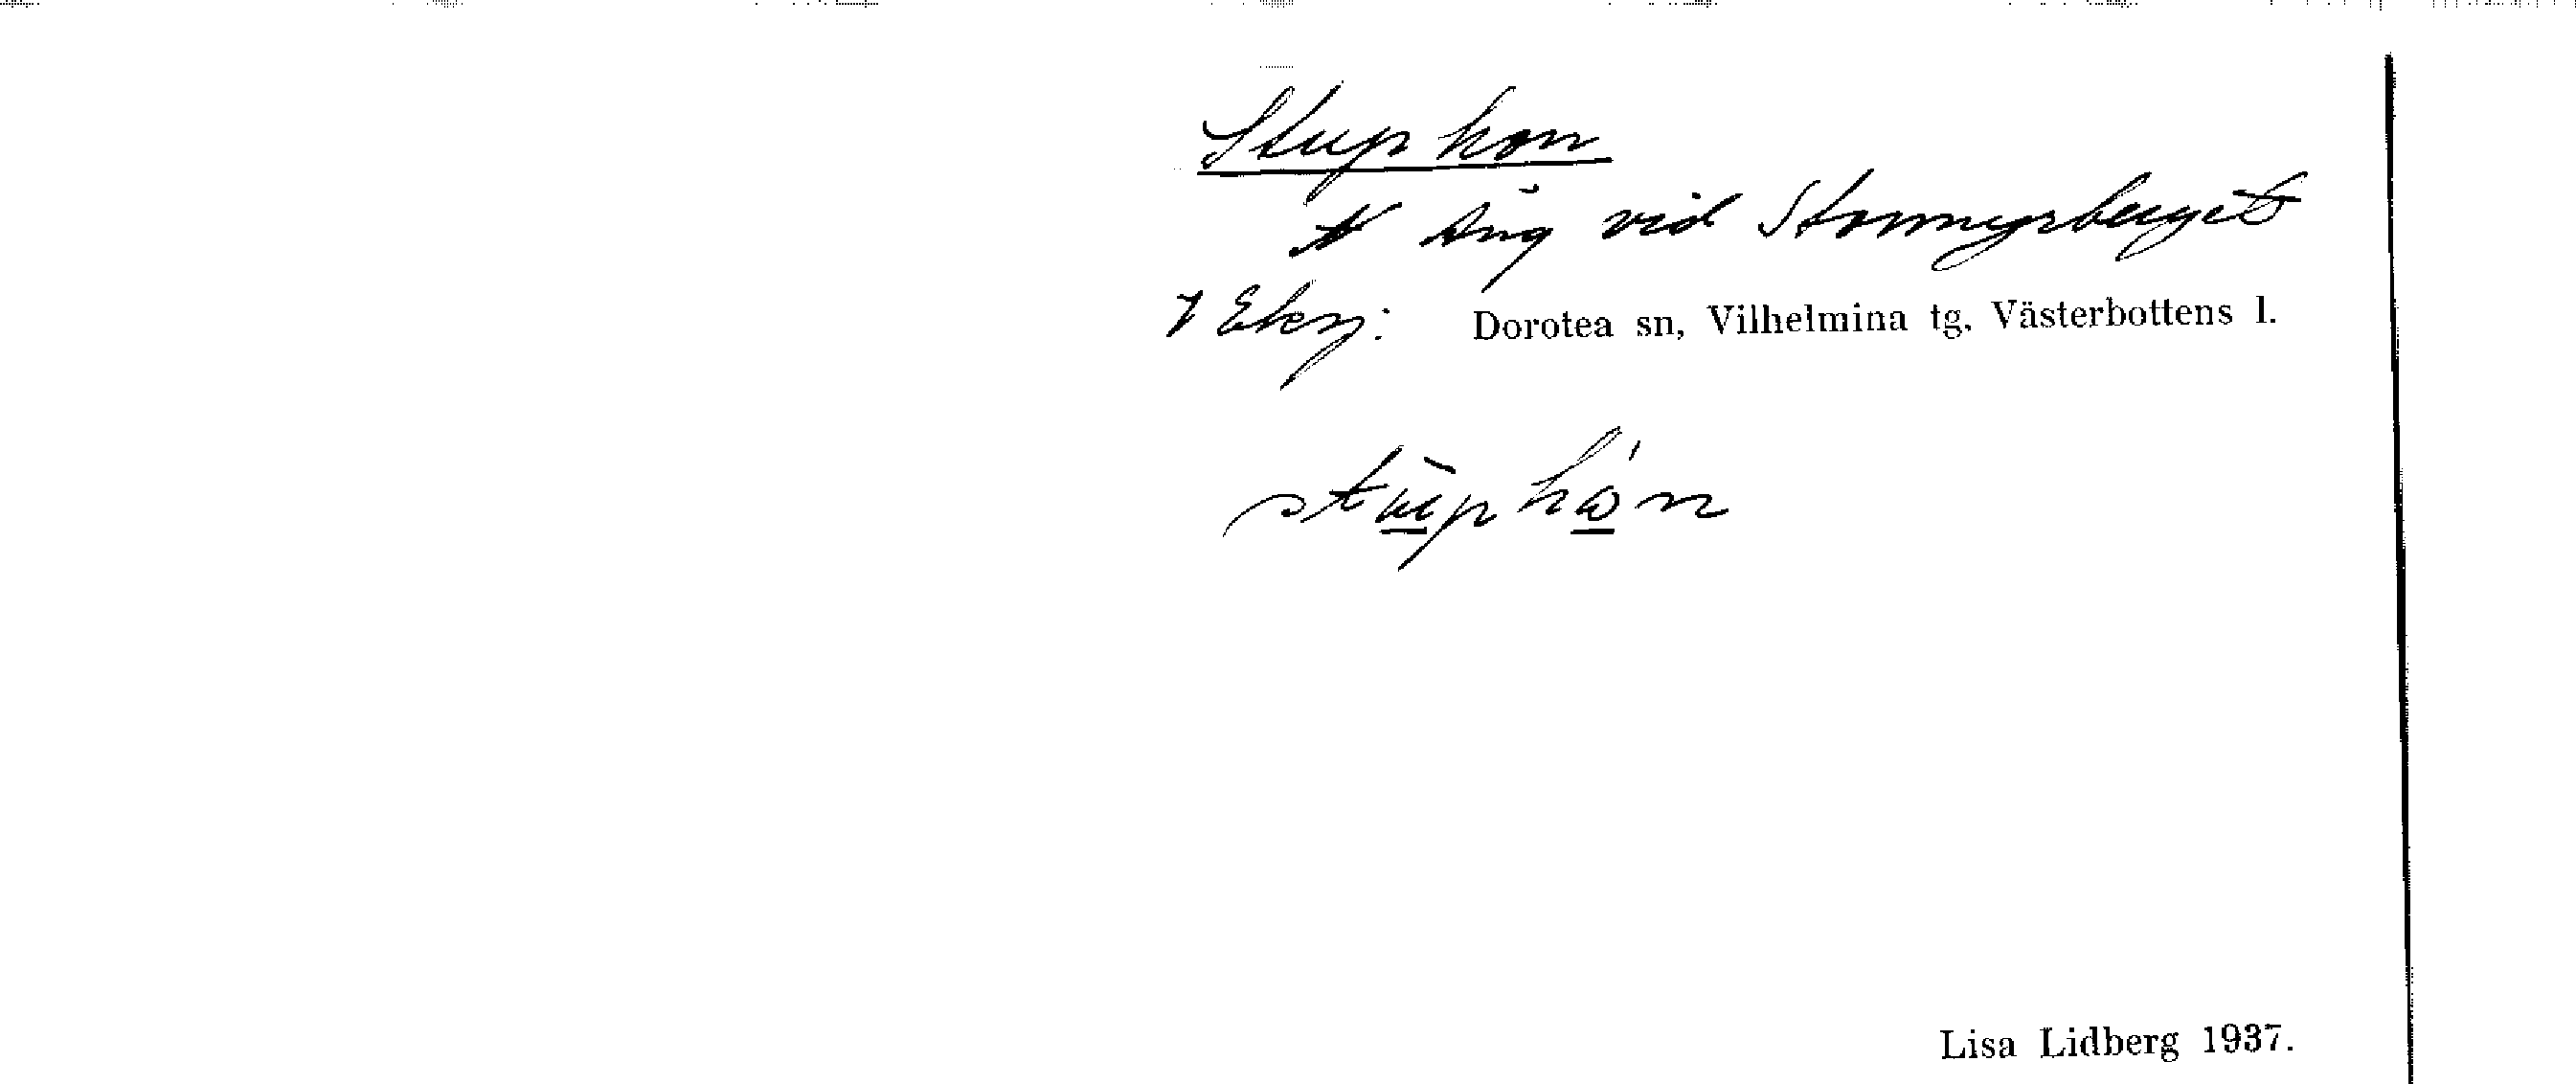 Stuphon
N Äng vid Stormyrberget
Dorotea sn, Vilhelmina tg, Västerbottens l.
Lisa Lidberg 1937.